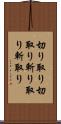 切り取り切
取り斬り取
り斬取り